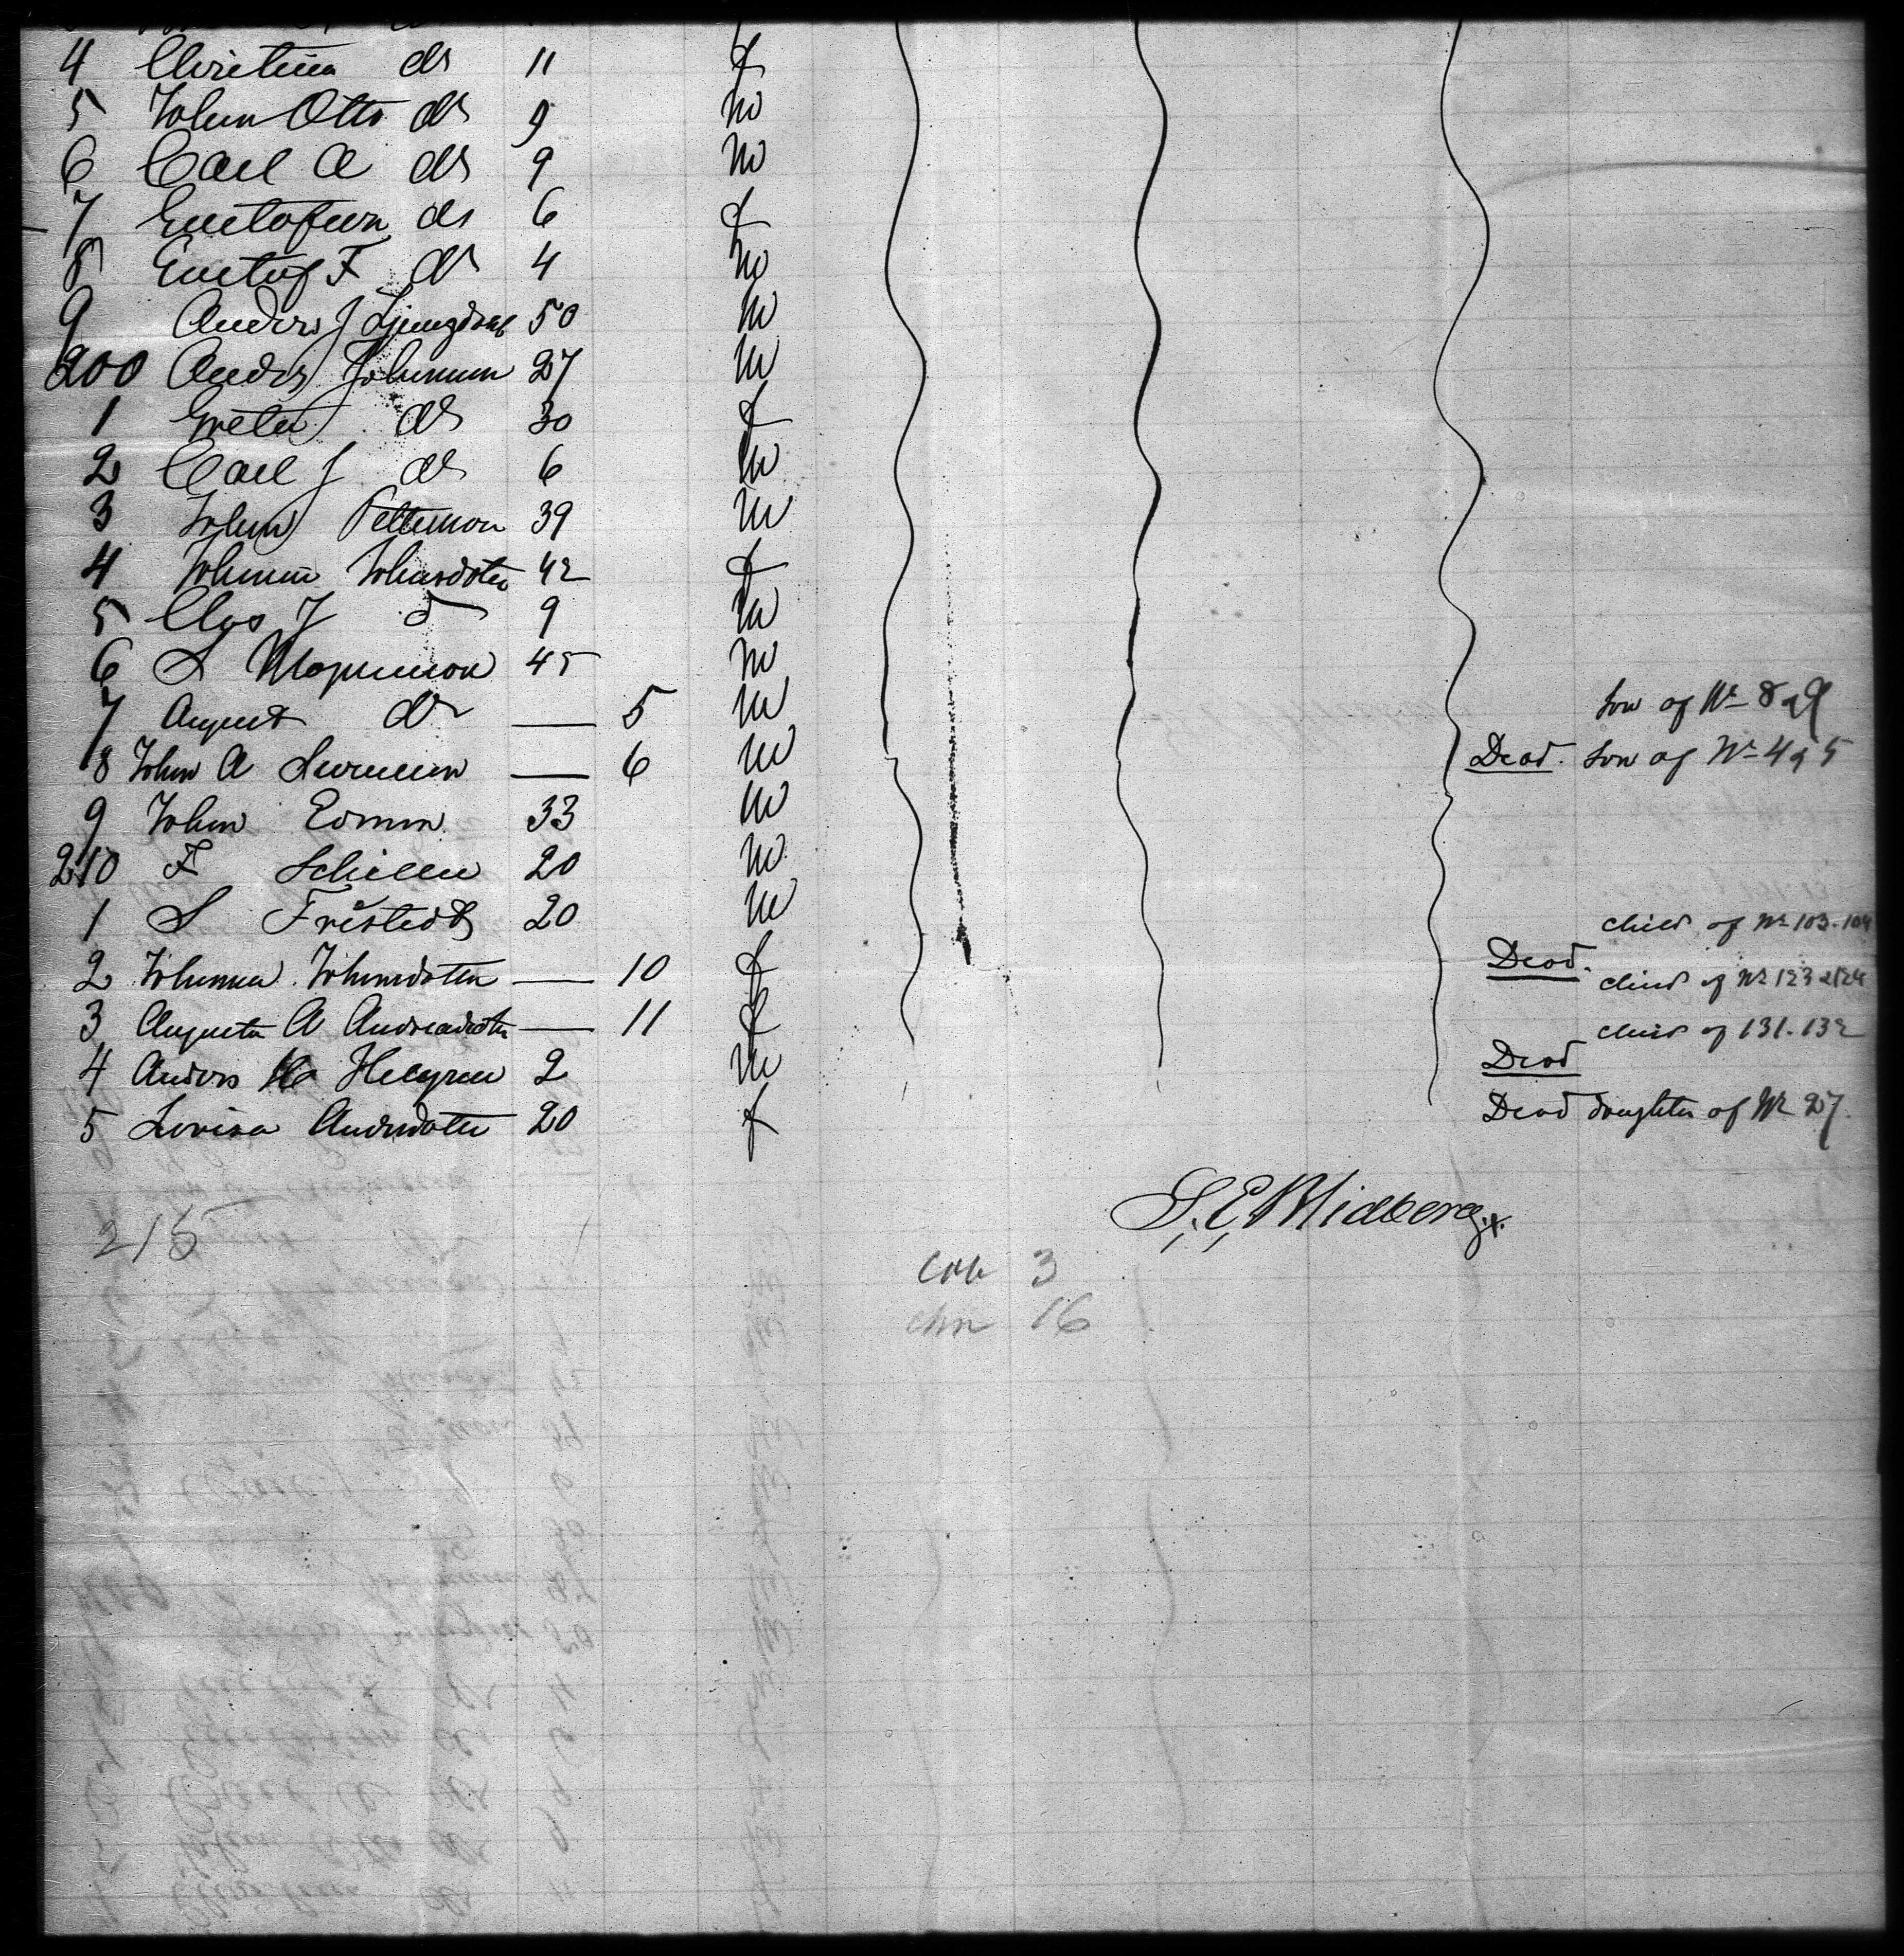 4 Christina do 11 f
5 Johan Otto do 9 m
6 Carl A do 9 m
7 Gustafven do 6 f
8 Gustaf F do 4 m
9 Anders J Ljungdahl 50 m
200 Anders Johanson 27 m
1 Greta do 30 f
2 Carl J do 6 m
3 Johan Petterson 39 m
4 Johanna Johansdotter 42 f
5 Clas J do 9 m
6 S Magnusson 45 m
7 August do — 5 m son of No 8 a 9
8 John A Swenson — 6 m Dead. son of No 4 a 5
9 John Edman 33 m
210 F 20 m
1 S Fristedt 20 m
2 Johanna Johansdotter — 10 f Dead. child of No 103-104
child of No 123 a 124
3 Augusta A Andreasdotter — 11 f child of 131-132
4 Anders Helgren 2 m Dead
5 Lovisa Andersdotter 20 f Dead daughter of No 27.
S. E. Midberg
215
3
chn 16